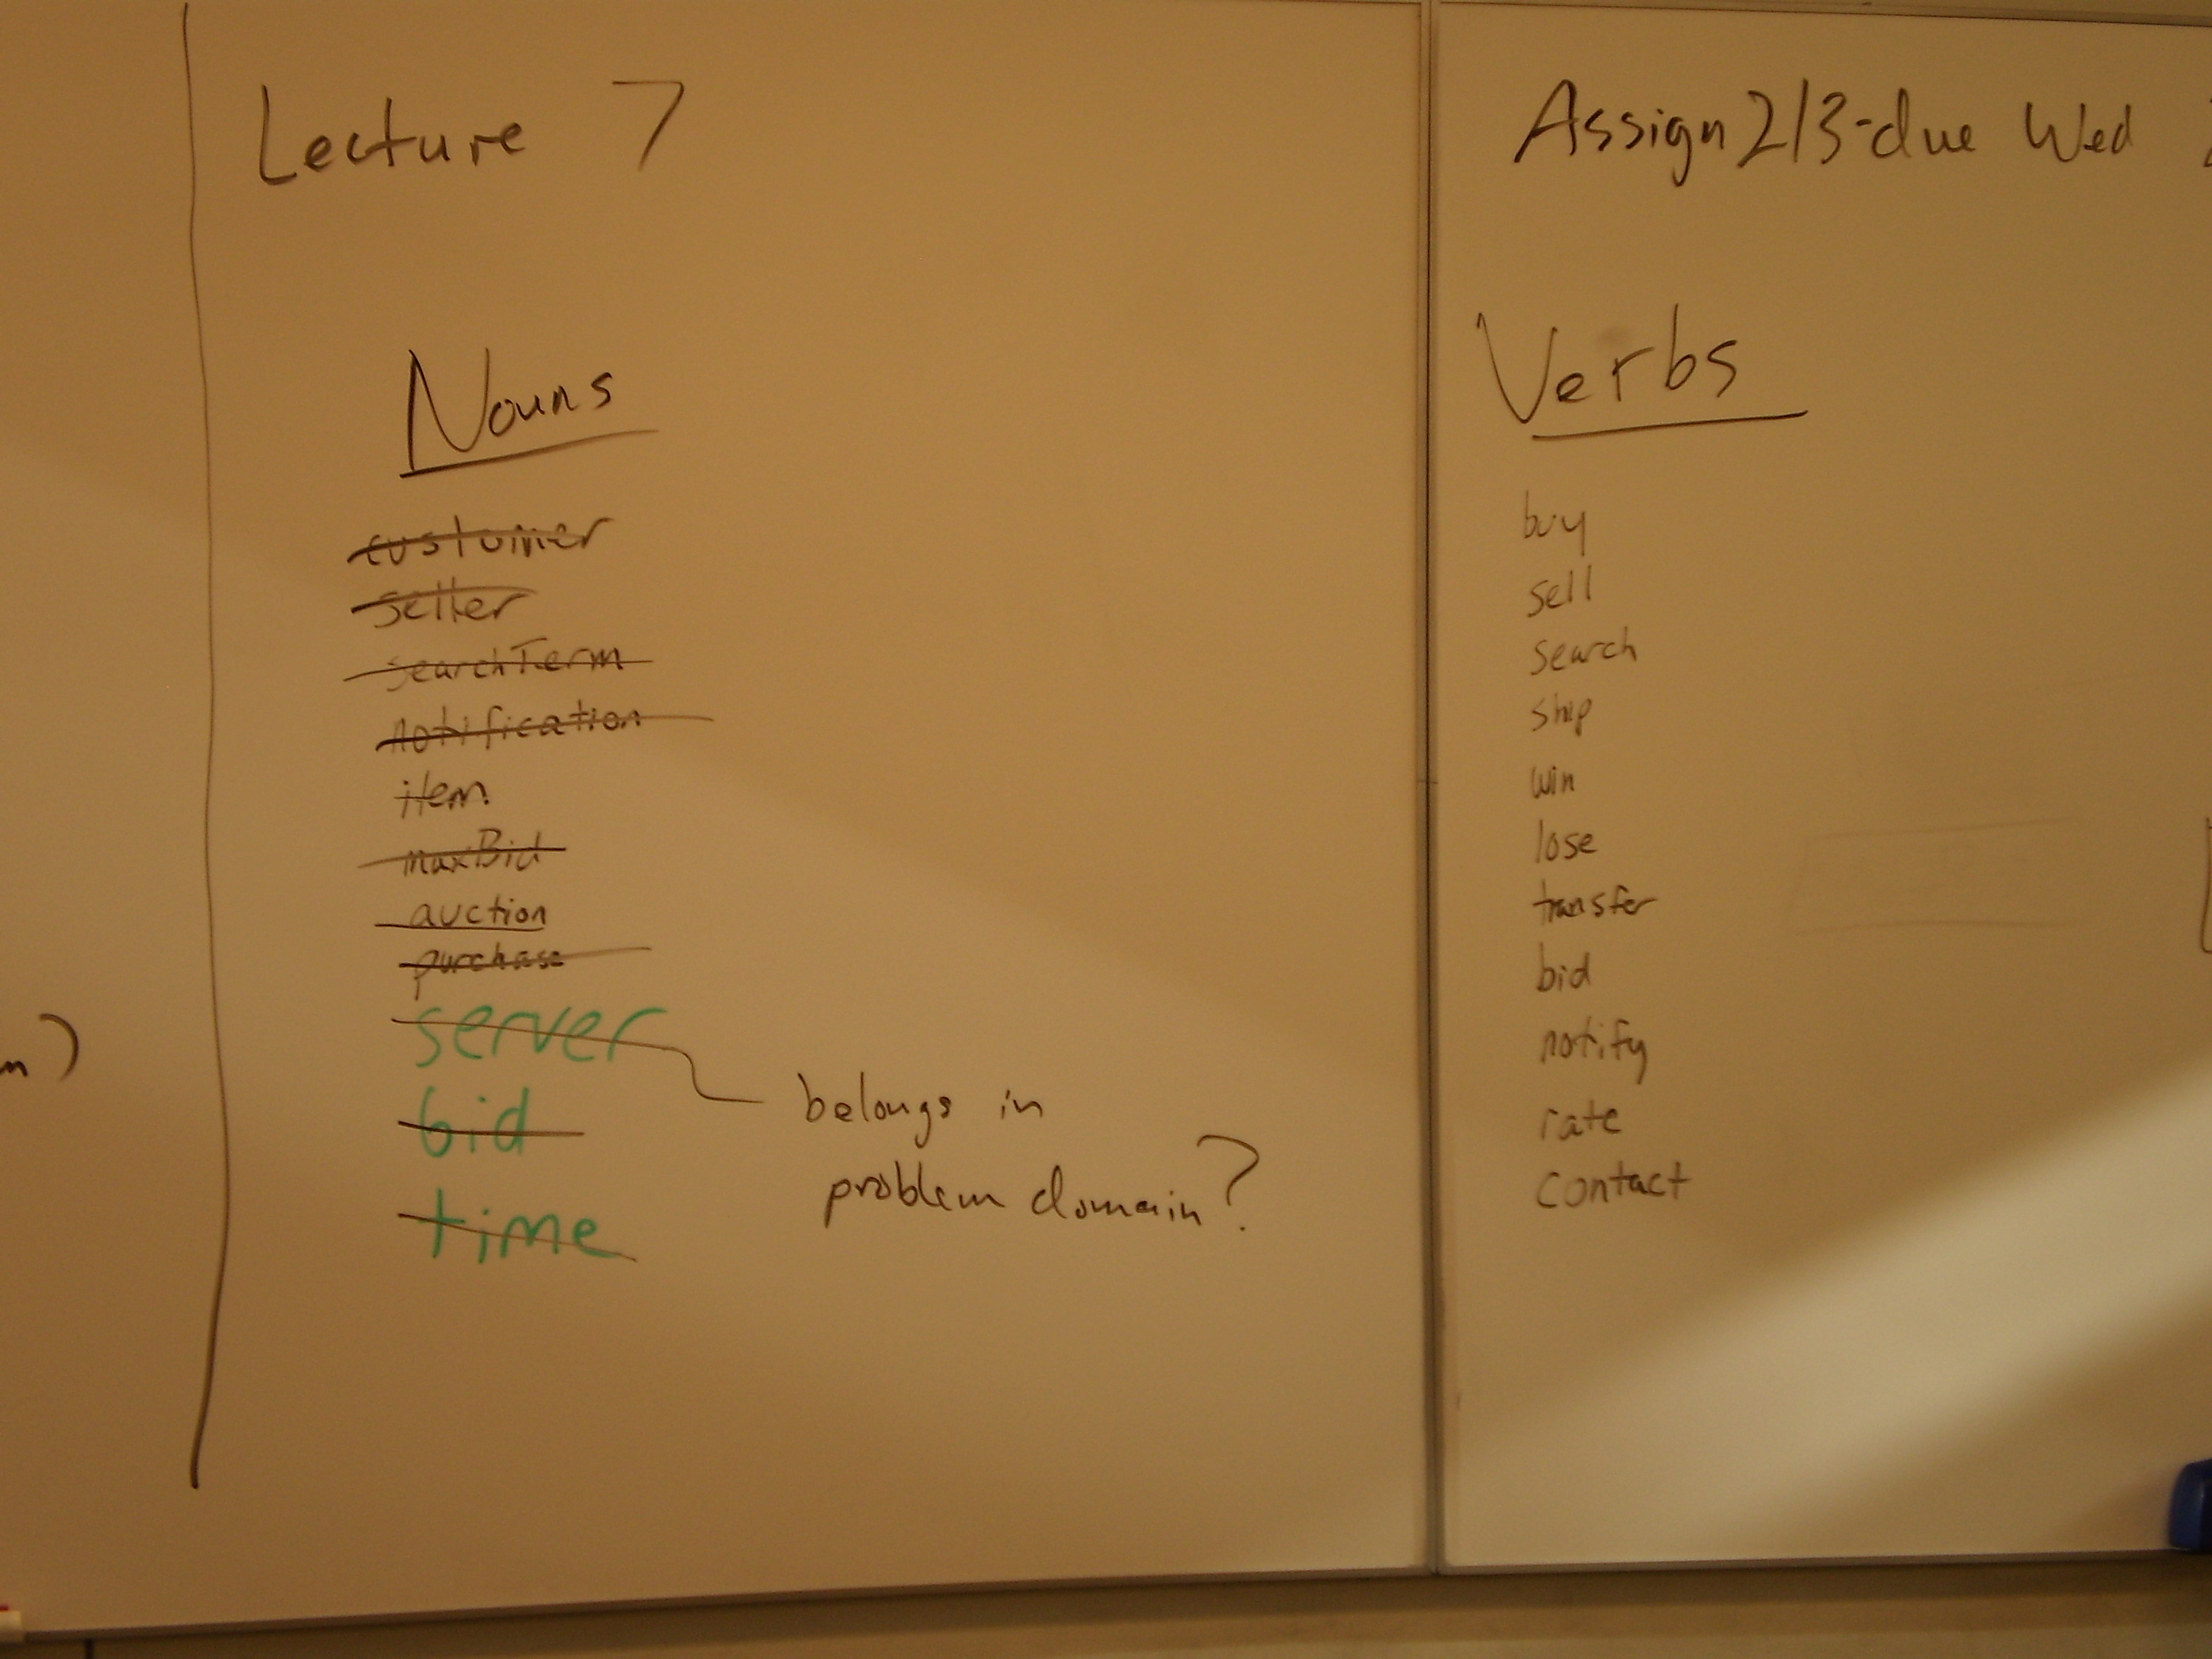 Lecture 7
Nouns
customer
seller
searchTerm
notification
item
maxBid
auction
purchase
server
bid
time
belongs in
problem domain?
Assign 2/3-due Wed
Verbs
buy
sell
search
ship
win
lose
transfer
bid
notify
rate
contact